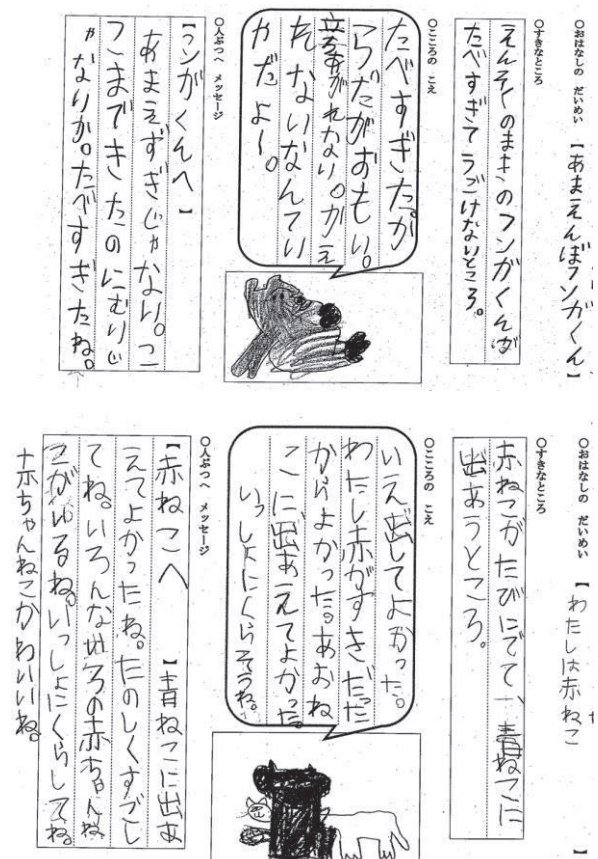 ○おはなしの だいめい
【あまえんぼフンガくん】
○すきなところ
えんそくのまきのフンガくんが
たべすぎてうごけないところ。
○こころの こえ
たべすぎたか
らだがおもい。
立ち上がれない。かえ
れないなんてい
やだよ〜。
○人ぶつへ メッセージ
【フンがくんへ】
あまえすぎじゃない。こ
こまできたのにむりじ
ゃないか。たべすぎたね。
○おはなしの だいめい
【わたしは赤ねこ】
○すきなところ
赤ねこがたびにでて、青ねこに
出あうところ。
○こころの こえ
いえ出してよかった。
わたし赤がすきだった
からよかった。あおね
こに出あえてよかった。
いっしょにくらそうね。
○人ぶつへ メッセージ
【赤ねこへ】青ねこに出あ
えてよかったね。たのしくすごし
てね。いろんな
の赤ちゃんね
こがいるね。いっしょにくらしてね。
赤ちゃんねこかわいいね。